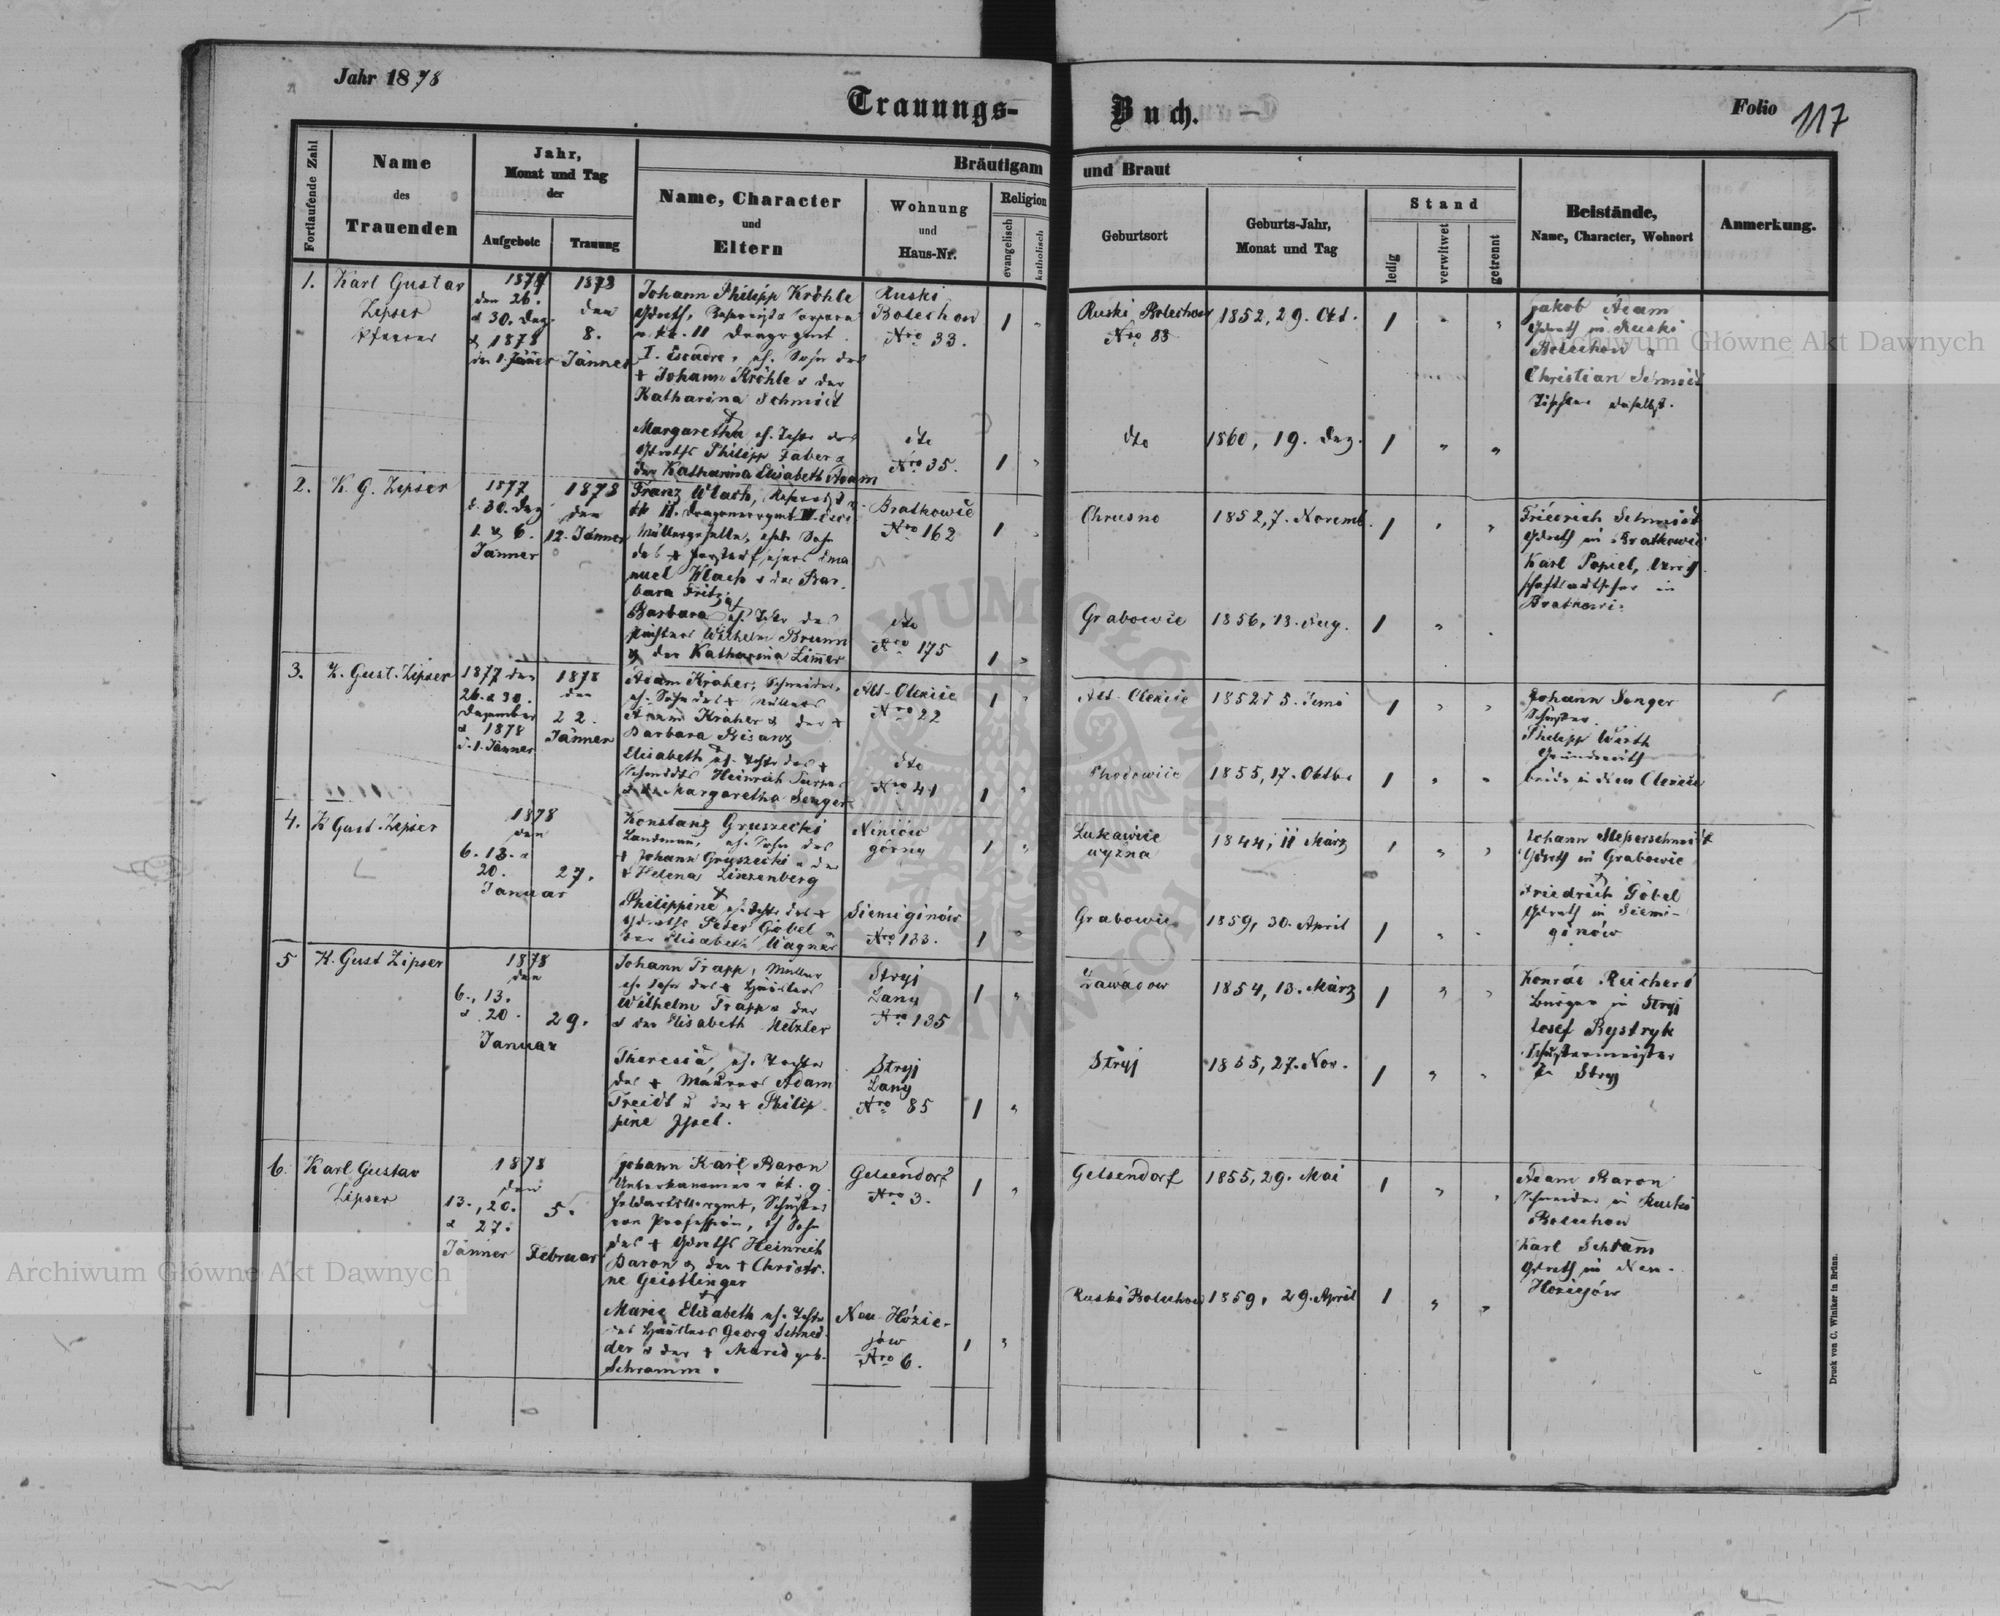 Jahr 1878
Trauungs-
Buch.
Folio 117
Fortlaufende Zahl
Name
des
Trauenden
Jahr,
Monat und Tag
der
Aufgebote
Trauung
Bräutigam
und Braut
Name, Character
und
Eltern
Wohnung
und
Haus-Nr.
Religion
evangelisch
katholisch
Geburtsort
Geburts-Jahr,
Monat und Tag
Stand
ledig
verwitwet
getrennt
Beistände,
Name, Character, Wohnort
Anmerkung.
1.
Karl Gustav
Zipser
Pfarrer
den 26.
& 30. Dez.
& 1878
den 1. Jänner
1878
den
8.
Jänner
Johann Philipp Kröhle
I. Escadr., eh. Sohn des
+ Johann Kröhle & der
Katharina Schmidt
Ruski
Bolechow
Nro 33.
1 "
Ruski Bolechow
Nro 33
1852, 29. Okt.
1 " "
Jakob Adam
Grdwth in Ruski
Bolechow &
Christian Schmidt
Tischler daselbst.
Margaretha eh. Tchtr des
Grdwths Philipp Faber &
der Katharina Elisabeth Adam
dto
Nro 35.
1 "
dto
1860, 19. Dez.
1 " "
2.
K. G. Zipser
1877
d. 30. Dez
1. & 6.
Jänner
1878
den
12. Jänner
Franz Wlach,
Müllergeselle, ehel. Sohn
bara Fritz
Bratkowic
Nro 162
1 "
Chrusno
1852, 7. Novemb.
1 " "
Friedrich Schmidt
Grdwth in Bratkowic
Karl Popiel,
in
Bratkowic
Barbara eh. Tchtr des
Wilhelm Brunn
& der Katharina Limer
dto
Nro 175
1 "
Grabowie
1856, 13. Aug.
1 "
3.
K. Gust. Zipser
1877 den
26. & 30.
Dezember
& 1878
d. 1. Jänner
1878
den
22.
Jänner
Adam Kraher, Schneider,
eh. Sohn des + Müllers
Adam Kraher & der +
Barbara Bisanz
Alt-Olexice
Nro 22
1 "
Alt-Olexice
1852 d 5. Juni
1 " "
Johann Senger
Philipp Wirth
Grundwirth
beide in Alt Olexice
Elisabeth eh. Tchtr des +
Schmidts Heinrich
& der Margaretha Senger
dto
Nro 41
1 "
1855, 17. Oktbr
1 " "
4.
K Gust. Zipser
1878
den
6. 13. &
20.
27.
Januar
Konstanz Gruszecki
Landmann, eh. Sohn des
+ Johann Gruszecki & der
+ Helena Linzenberg
Niniów
górny
1 "
Lukawice
wyzna
1844, 11 März
1 " "
Johann Messerschmidt
Grdwth in Grabowie
Friedrich Göbel
Grdwth in Siemi-
ginów
Philippine eh. Tchtr des +
Grdwths Peter Göbel &
der Elisabeth Wagner
Siemiginów
Nro 133.
1 "
Grabowie
1859, 30. April
1 "
5
K. Gust Zipser
1878
den
6., 13.
& 20.
29.
Januar
Johann Trapp, Müller
eh. Sohn des + Häuslers
Wilhelm Trapp & der
& der Elisabeth Metzler
Stryj
Lany
Nro 135
1 "
Zawadow
1854, 13. März
1 " "
Konrád Reichert
Bürger in Stryj
Josef Bystryk
Schustermeister
in Stryj
Theresia, eh. Tochter
des + Maurers Adam
Treidt u der + Philip-
pine
Stryj
Lany
Nro 85
1 "
Stryj
1855, 27. Nov.
1 "
6.
Karl Gustav
Zipser
1878
den
13., 20.
& 27.
Jänner
5.
Februar
Johann Karl Baron
Unterkanonier d. k. 9.
Feldartill. rgmt, Schuster
von Profession, eh Sohn
des + Grdwths Heinrich
Baron & der + Christi-
ne Geistlinger
Gelsendorf
Nro 3.
1 "
Gelsendorf
1855, 29. Mai
1 " "
Adam Baron
Schneider in Ruski
Bolechow
Karl Schram
Grdwth in Neu-
Hoziejów
Maria Elisabeth eh. Tchtr
des Häuslers Georg Schnei-
der & der + Maria geb.
Schramm.
Neu-Hózie-
jów
Nro 6.
1 "
Ruski Bolechow
1859, 29. April
1 " "
Druck von C. Winiker in Brünn.
Archiwum Główne Akt Dawnych
Archiwum Główne Akt Dawnych